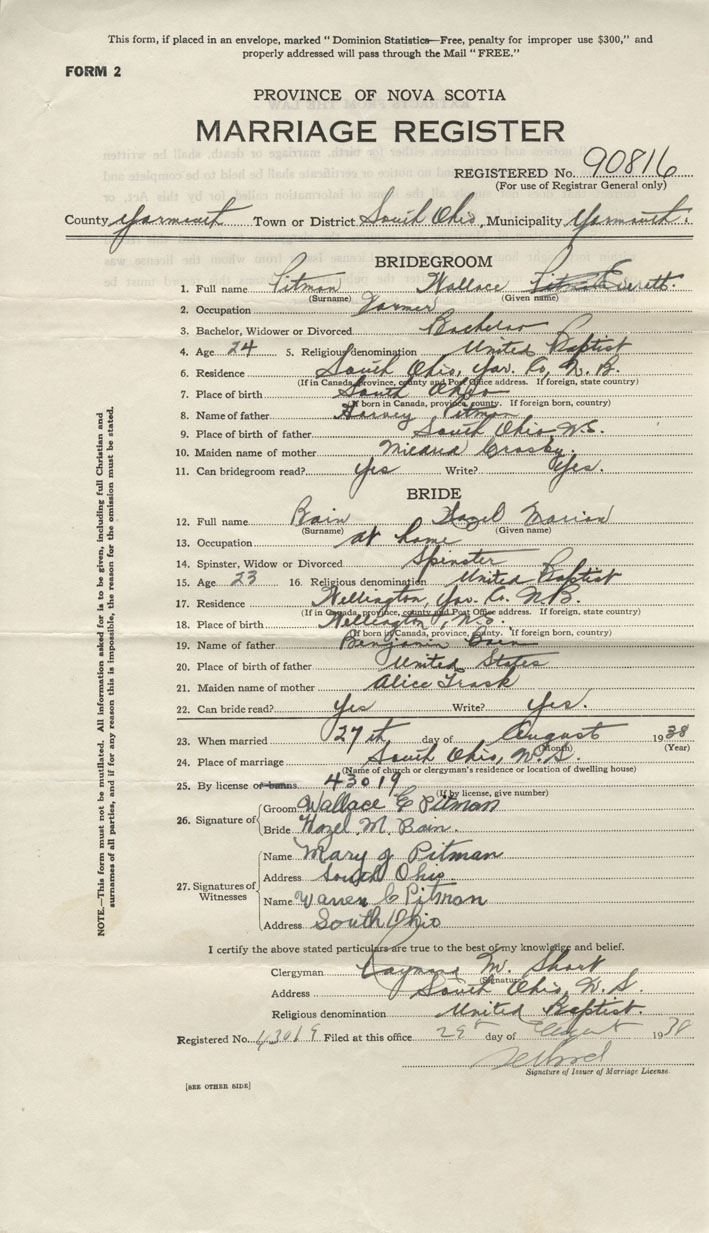 This form, if placed in an envelope, marked "Dominion Statistics—Free, penalty for improper use $300," and
properly addressed will pass through the Mail "FREE."
FORM 2
PROVINCE OF NOVA SCOTIA
MARRIAGE REGISTER
REGISTERED No. 90816
(For use of Registrar General only)
County Yarmouth Town or District South Ohio, Municipality Yarmouth.
BRIDEGROOM
1. Full name Pitman Wallace Everett.
(Surname) (Given name)
2. Occupation Farmer
3. Bachelor, Widower or Divorced Bachelor
4. Age 24 5. Religious denomination United Baptist
6. Residence South Ohio, Yar. Co, N.B.
(If in Canada, province, county and Post Office address. If foreign, state country)
7. Place of birth South Ohio
(If born in Canada, province, county. If foreign born, country)
8. Name of father Harvey Pitman
9. Place of birth of father South Ohio N.S.
10. Maiden name of mother Crosby.
11. Can bridegroom read? Yes Write? Yes.
BRIDE
12. Full name Bain Hazel Marion
(Surname) (Given name)
13. Occupation at home
14. Spinster, Widow or Divorced Spinster
15. Age 23 16. Religious denomination United Baptist
17. Residence Wellington, Yar. Co. N.B.
(If in Canada, province, county and Post Office address. If foreign, state country)
18. Place of birth Wellington, N.S.
(If born in Canada, province, county. If foreign born, country)
19. Name of father Benjamin Bain
20. Place of birth of father United States
21. Maiden name of mother Alice Trask
22. Can bride read? Yes Write? Yes.
23. When married 27th day of August 1938
(Month) (Year)
24. Place of marriage South Ohio, N.S.
(Name of church or clergyman's residence or location of dwelling house)
25. By license or banns 43019
(If by license, give number)
26. Signature of Groom Wallace E Pitman
Bride Hazel M. Bain.
27. Signatures of Witnesses Name Mary J Pitman
Address South Ohio.
Name Warren C Pitman
Address South Ohio
I certify the above stated particulars are true to the best of my knowledge and belief.
Clergyman M. Short
(Signature)
Address South Ohio, N.S.
Religious denomination United Baptist.
Registered No. 43019 Filed at this office 29th day of August 1938
Signature of Issuer of Marriage License.
[SEE OTHER SIDE]
NOTE.—This form must not be mutilated. All information asked for is to be given, including full Christian and
surnames of all parties, and if for any reason this is impossible, the reason for the omission must be stated.